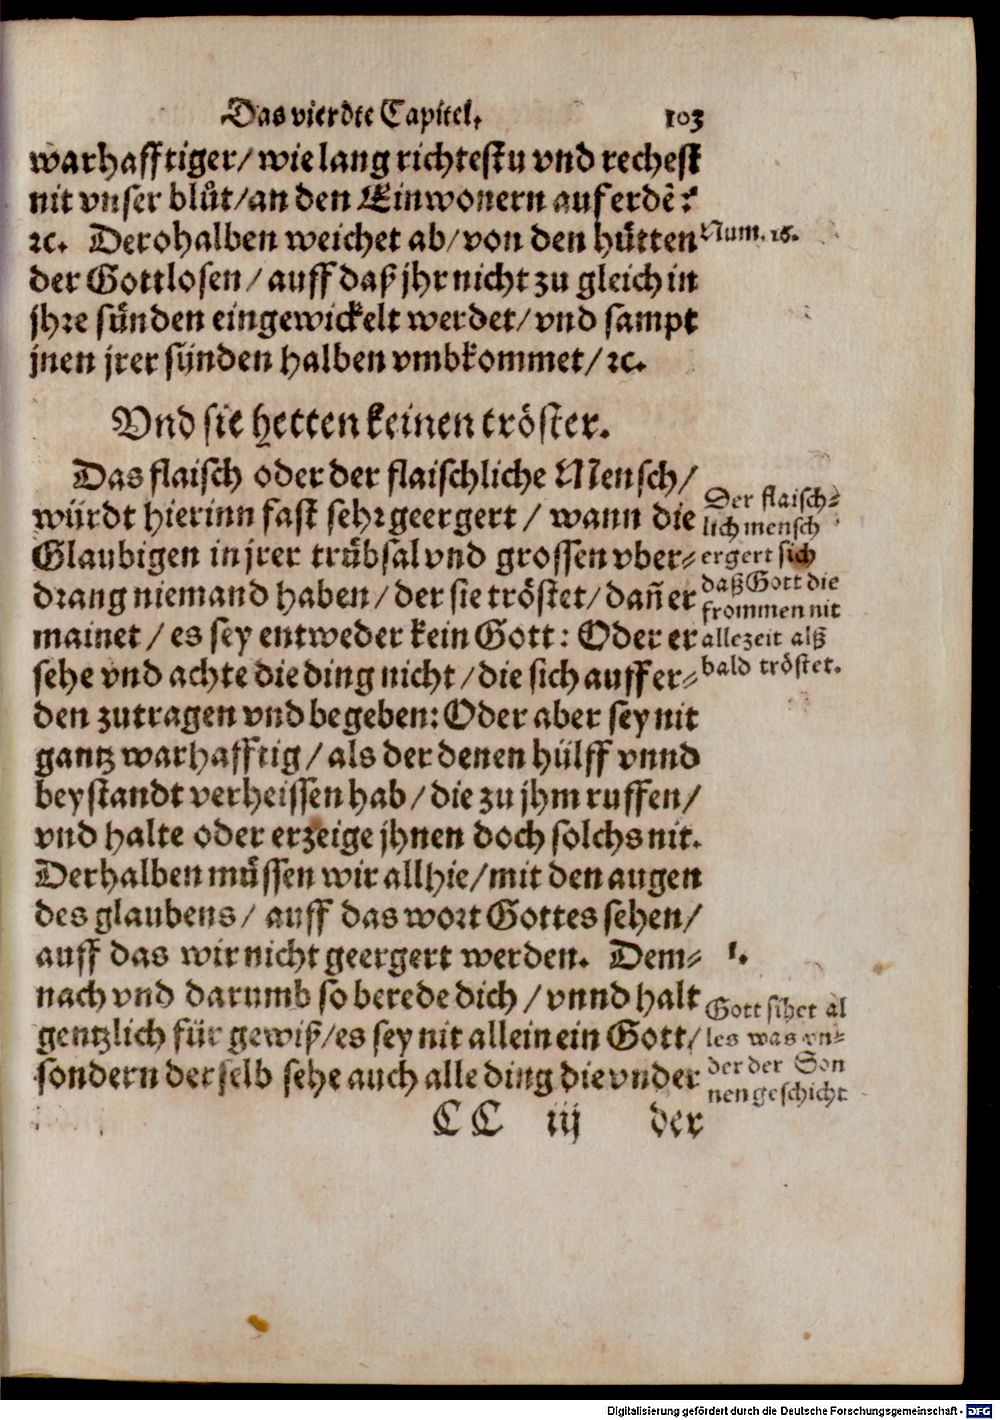 Das vierdte Capitel. 103
warhafftiger/ wie lang richtestu vnd rechest
nit vnser blůt/ an den Einwonern auf erdẽ?
ꝛc. Derohalben weichet ab/ von den hůtten
Num. 16.
der Gottlosen/ auff daß jhr nicht zu gleich in
jhꝛe sünden eingewickelt werdet/ vnd sampt
jnen jrer sünden halben vmbkommet/ ꝛc.
Vnd sie hetten keinen tröster.
Das flaisch oder der flaischliche Mensch/
würdt hierinn fast sehꝛ geergert/ wann die
Glaubigen in jrer trübsal vnd grossen vber-
dꝛang niemand haben/ der sie tröstet/ dañ er
mainet/ es sey entweder kein Gott: Oder er
sehe vnd achte die ding nicht/ die sich auff er-
den zutragen vnd begeben: Oder aber sey nit
gantz warhafftig/ als der denen hülff vnnd
beystandt verheissen hab/ die zu jhm ruffen/
vnd halte oder erzeige jhnen doch solchs nit.
Derhalben müssen wir allhie/ mit den augen
des glaubens/ auff das woꝛt Gottes sehen/
auff das wir nicht geergert werden. Dem-
nach vnd darumb so berede dich/ vnnd halt
gentzlich für gewiß/ es sey nit allein ein Gott/
sondern derselb sehe auch alle ding die vnder
Der flaisch-
lich mensch
ergert sich
daß Gott die
frommen nit
allezeit alß
bald tröstet.
1.
Gott sihet al
les was vn-
der der Son
nen geschicht
CC iij der
Digitalisierung gefördert durch die Deutsche Forschungsgemeinschaft - DFG